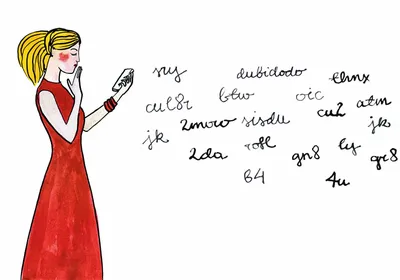 sry dubidodo thnx
cul8r btw oic cu2 atm
jk 2moro sisdu jk
2da rofl gn8 ly gr8
B4 4u